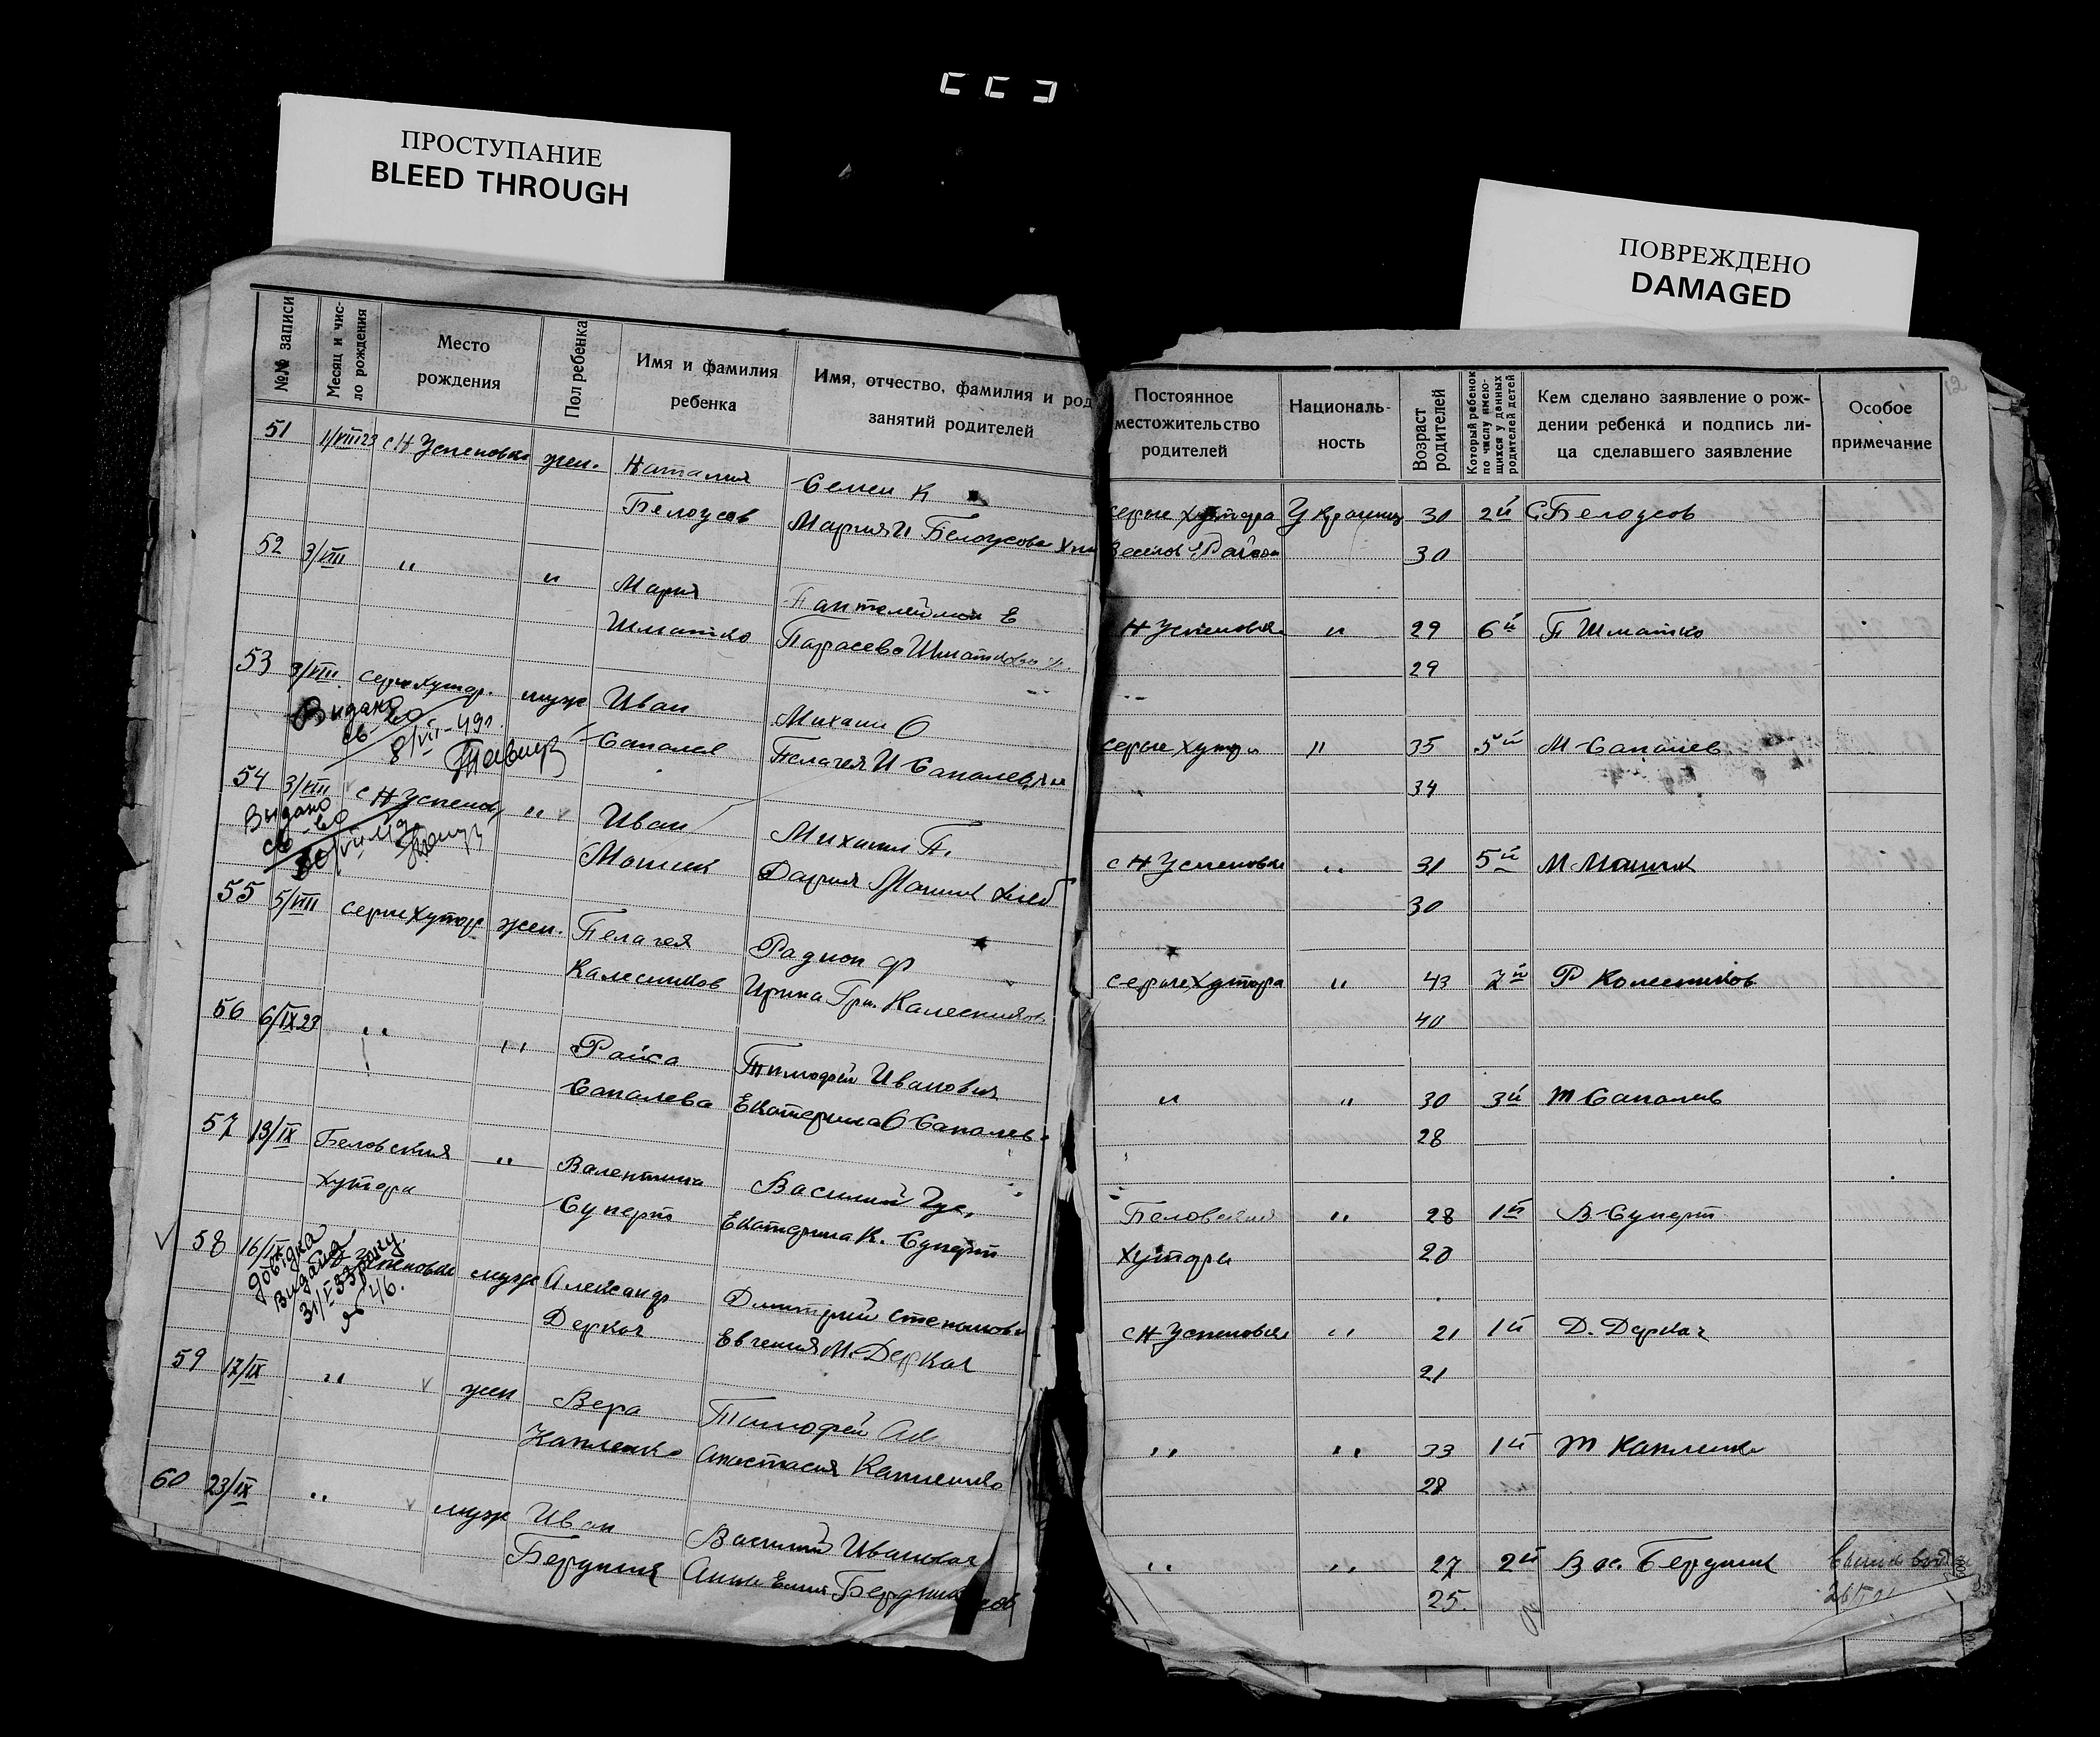 ПРОСТУПАНИЕ
BLEED THROUGH
ПОВРЕЖДЕНО
DAMAGED
№№ записи
Месяц и чис-
ло рождения
Место
рождения
Пол ребенка
Имя и фамилия
ребенка
Имя, отчество, фамилия и род
занятий родителей
Постоянное
местожительство
родителей
Националь-
ность
Возраст
родителей
Который ребенок
по числу имею-
щихся у данных
родителей детей
Кем сделано заявление о рож-
дении ребенка и подпись ли-
ца сделавшего заявление
Особое
примечание
51 1/VIII 23 с Н Успеновка жен. Наталия Семен К
Белоусов Мария И Белоусова
серые хутора Украинц 30 2й С Белоусов
30
52 3/VIII " " Мария Пантелеймон Е
Шматко Парасева Шматкова
Н Успеновка " 29 6й П Шматко
29
53 3/VIII серые хутор. муж Иван Михаил О
Сапалев Пелагея И Сапалев
Видано
св-во
8/VII-49г.
серые хутра " 35 5й М Сапалев
34
54 3/VIII с Н Успенов " Иван Михаил П.
Машик Дария Машик хлеб
Выдано
св-во
с Н Успеновка " 31 5й М Машик
30
55 5/VIII серые хутор жен. Пелагея Радион Ф
Калесников Ирина Гри. Калесников
серые хутора " 43 7й Р Колесников
40
56 6/IX 23 " " Раиса Тимофей Иванович
Сапалева Екатерина О Сапалев
" " 30 3й Т Сапалев
28
57 13/IX Беловския " Валентина Василий
хутора Суперт Екатерина К. Суперт
Беловския " 28 1й В Суперт
хутора 20
58 16/IX Успеновка муж Александр Дмитрий Степанов
Деркач Евгения М. Деркач
довідка
видана
31/I 33 року.
№ 46.
с Н Успеновка " 21 1й Д. Деркач
21
59 17/IX " жен Вера Тимофей
Капленко Анастасия Капленко
" " 33 1й Т Капленко
28
60 23/IX " муж Иван Василий Иванович
Бердник Анна Бердник
" " 27 2й Вас. Бердник
25.